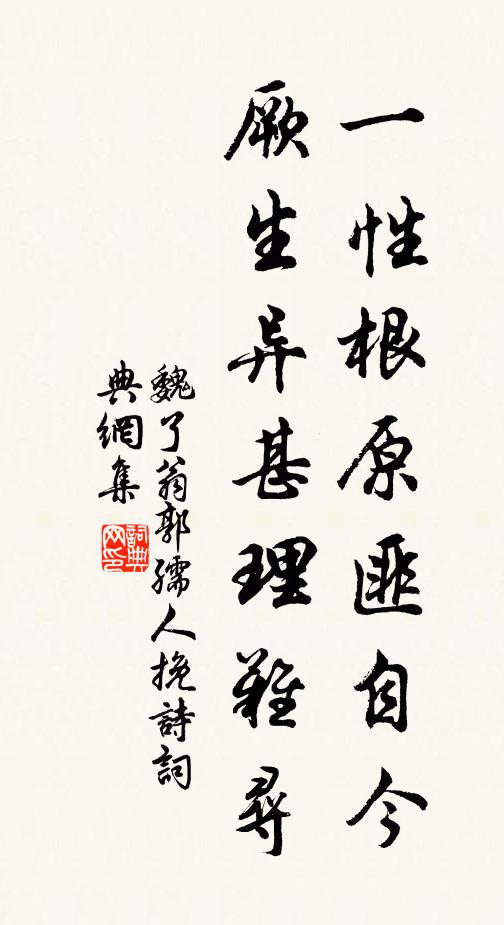 一性根原匪自今
厥生异甚理難尋
魏了翁郭孺人挽詩詞
典網集
詞典网印